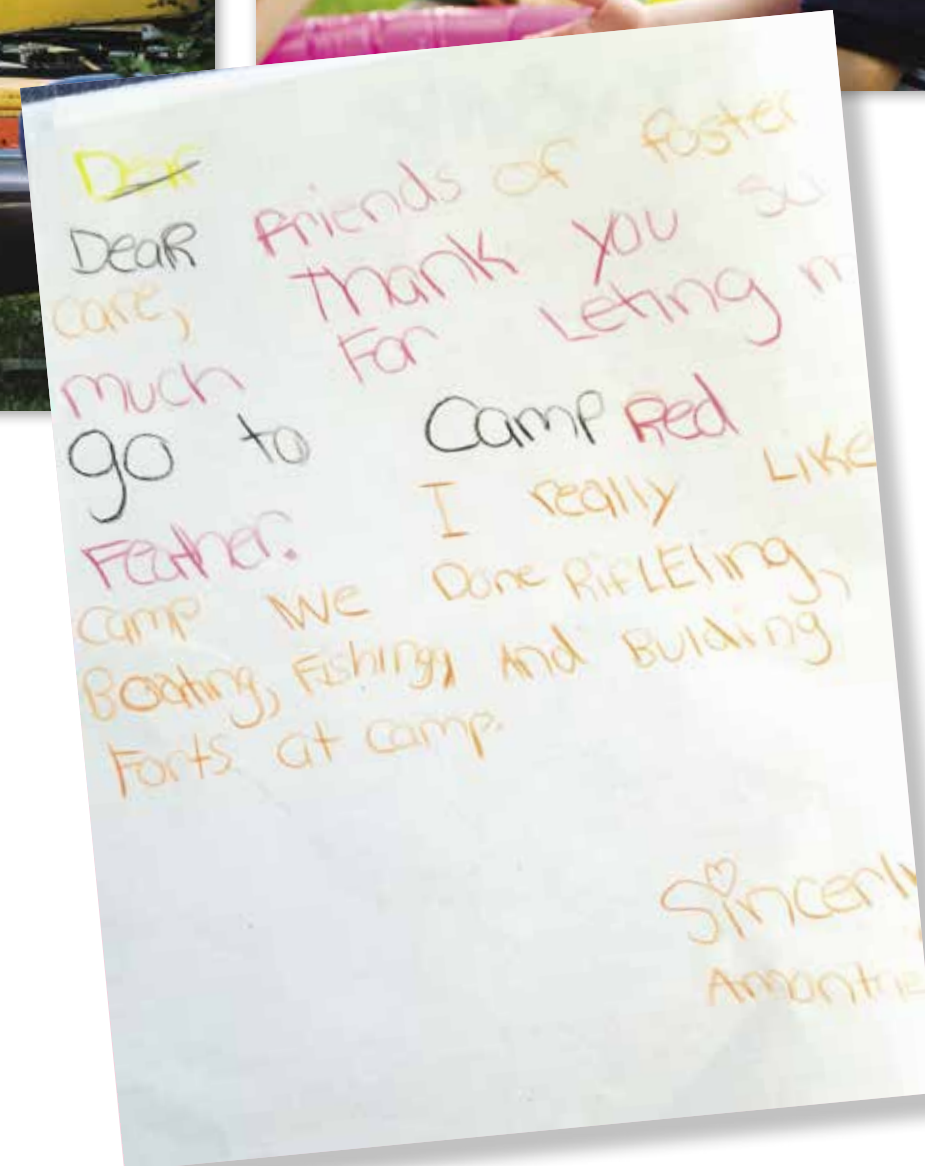 Dear
Dear Friends of foster
care, Thank you so
much For Leting m
go to Camp Red
Feather. I really Like
Camp We Done RifLEting,
Boating, Fishing, And Bulding
Forts at camp.
Sincerly